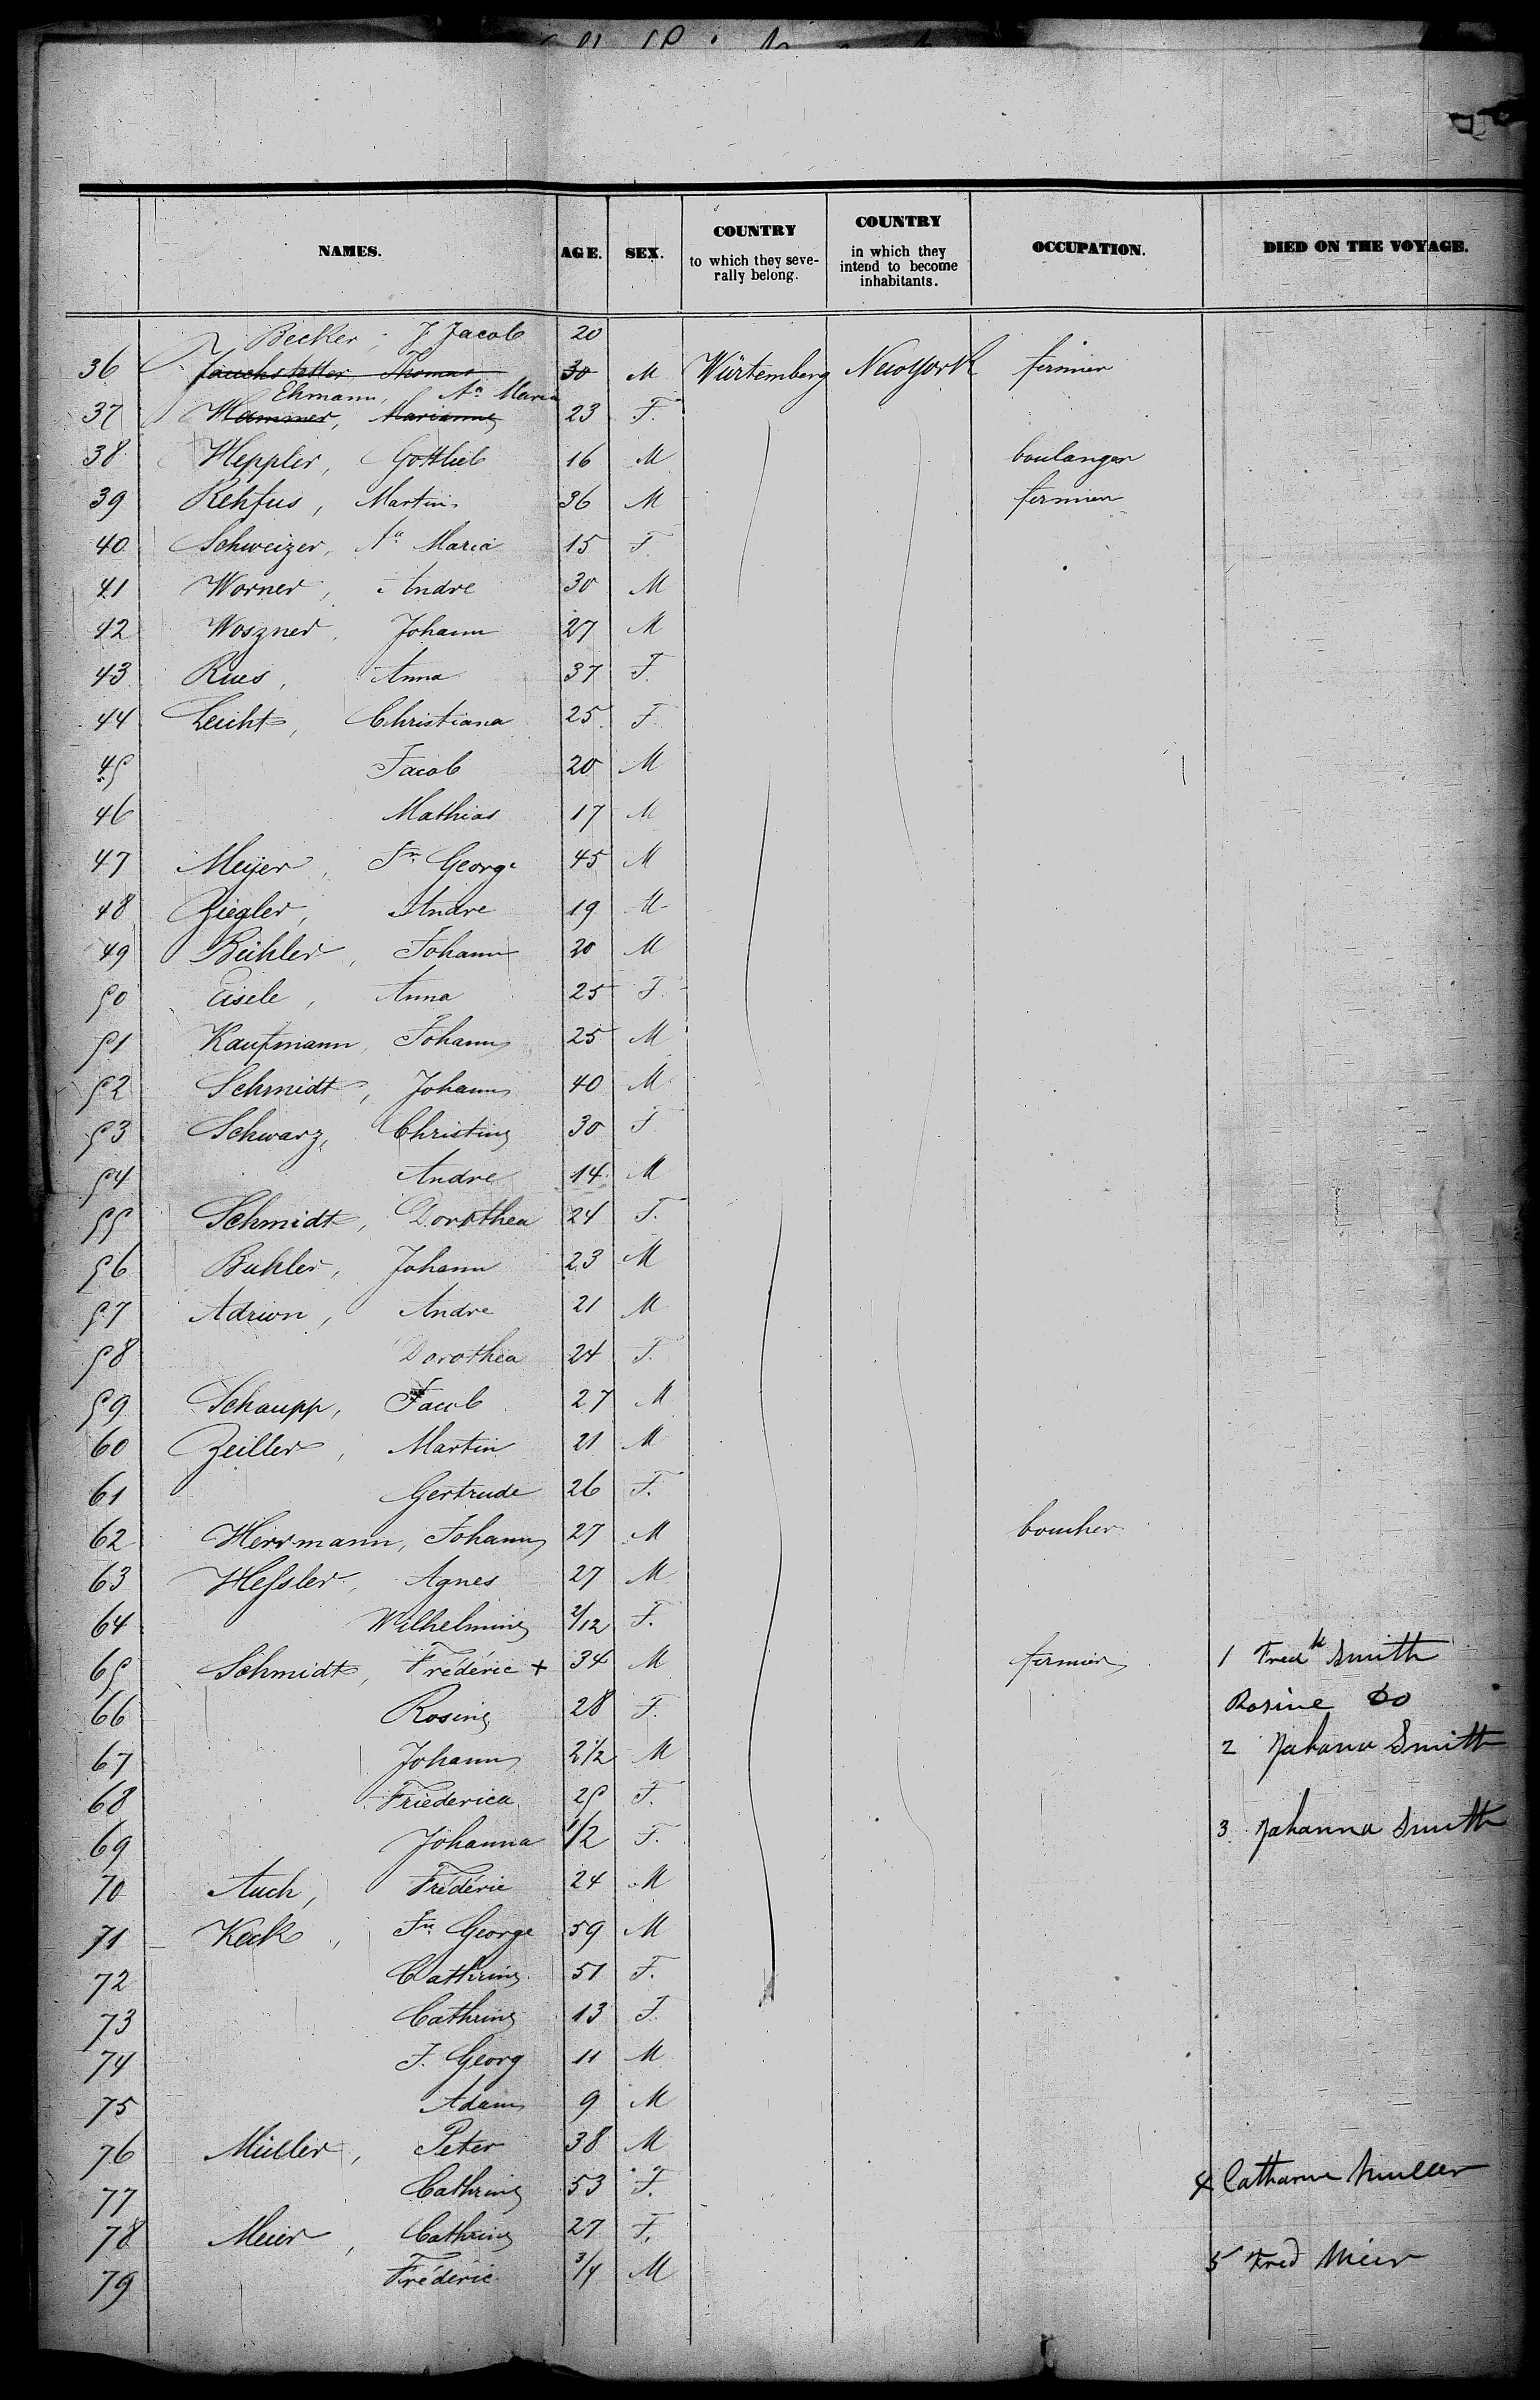 NAMES. AGE. SEX. COUNTRY to which they severally belong. COUNTRY in which they intend to become inhabitants. OCCUPATION. DIED ON THE VOYAGE.
Becker, J Jacob 20
36 Jauchstetter Thomas 30 M Würtemberg New York fermier
Ehmann, Aa Maria
37 Hammer, Marianne 23 F.
38 Heppler, Gottlieb 16 M boulanger
39 Rehfus, Martin 36 M fermier
40 Schweizer, Aa Maria 15 F
41 Worner, Andre 30 M
42 Woszner, Johann 27 M
43 Rues, Anna 37 F.
44 Leicht, Christiana 25 F
45 Jacob 20 M
46 Mathias 17 M
47 Meijer, Jn George 45 M
48 Ziegler, Andre 19 M
49 Bühler, Johann 20 M
50 Eisele, Anna 25 F.
51 Kaufmann, Johann 25 M
52 Schmidt, Johann 40 M
53 Schwarz, Christine 30 F
54 Andre 14 M
55 Schmidt, Dorothea 24 F.
56 Buhler, Johann 23 M
57 Adrion, Andre 21 M
58 Dorothea 24 F.
59 Schaupp, Jacob 27 M
60 Zeiller, Martin 21 M
61 Gertrude 26 F.
62 Herrmann, Johann 27 M boucher
63 Hessler, Agnes 27 M
64 Wilhelmine 2/12 F.
65 Schmidt, Fréderic + 34 M fermier 1 Fredk Smith
66 Rosine 28 F. Rosine do
67 Johann 2 1/2 M 2 Johann Smith
68 Friederica 25 F.
69 Johanna 1/2 F. 3 Johanna Smith
70 Auch, Fréderic 24 M
71 Keck, Jn George 59 M
72 Cathrine 51 F.
73 Cathrine 13 F.
74 J. Georg 11 M
75 Adam 9 M
76 Müller, Peter 38 M
77 Cathrine 53 F. 4 Catharine Muller
78 Meier, Cathrine 27 F.
79 Fréderic 3/4 M 5 Fred Meier